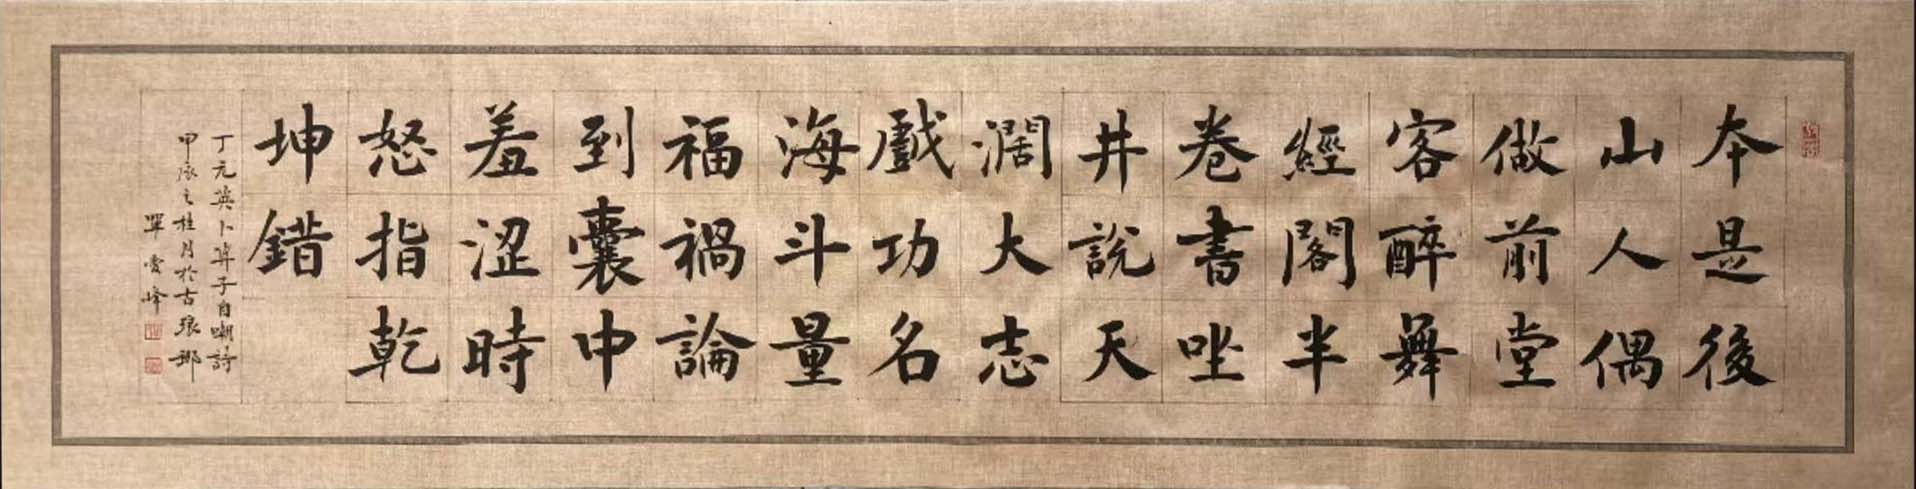 本是後
山人偶
做前堂
客醉舞
經閣半
卷書坐
井說天
濶大志
戲功名
海斗量
福禍論
到囊中
羞涩時
怒指乾
坤錯
丁元英卜算子自嘲詩
甲辰之桂月於古琅琊
單峰